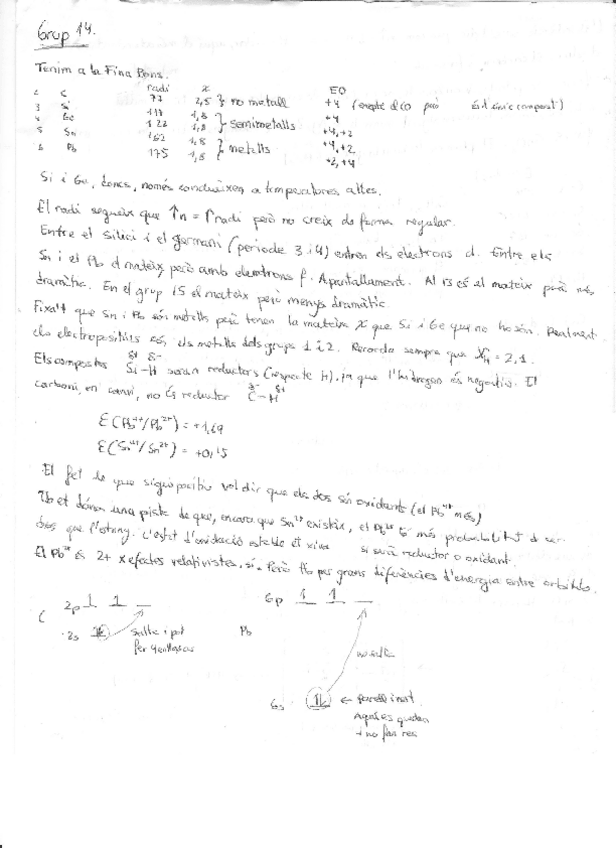 Grup 14.
Tenim a la Fina Pons.
radi X EO
2 C 77 2,5 } no metall +4 (excepte el CO però
3 Si 117 1,8 } semimetalls +4
4 Ge 122 1,8 +4,+2
5 Sn 162 1,8 } metalls +4,+2
6 Pb 175 1,8 +2,+4
Si i Ge, doncs, només condueixen a temperatures altes.
El radi segueix que ↑n = ↑radi però no creix de forma regular.
Entre el silici i el germani (període 3 i 4) entren els electrons d. Entre els
Sn i el Pb el mateix però amb electrons f. Apantallament. Al 13 és el mateix però més
dramàtic. En el grup 15 el mateix però menys dramàtic.
Fixa't que Sn i Pb són metalls però tenen la mateixa X que Si i Ge que no ho són. Realment
els electropositius són els metalls dels grups 1 i 2. Recorda sempre que XH = 2,1.
Els compostos Si-H seran reductors (respecte H), ja que l'hidrogen és negatiu. El
δ+ δ-
carboni, en canvi, no és reductor C-H
δ- δ+
E(Pb4+/Pb2+) = +1,69
E(Sn4+/Sn2+) = +0,15
El fet de que sigui positiu vol dir que els dos són oxidants (el Pb4+ més)
et dónen una pista de que, encara que Sn2+ existeix, el Pb2+ té més probabilitat d
que l'estany. L'estat d'oxidació estable et si serà reductor o oxidant.
El Pb és 2+ x efectes relativistes, sí. Però tb per grans diferències d'energia entre orbitals.
C 2p 1 1
2s Salta i pot
fer 4 enllaços
Pb 6p 1 1
no salta
6s ← parell inert
Aquí es queden
i no fan res